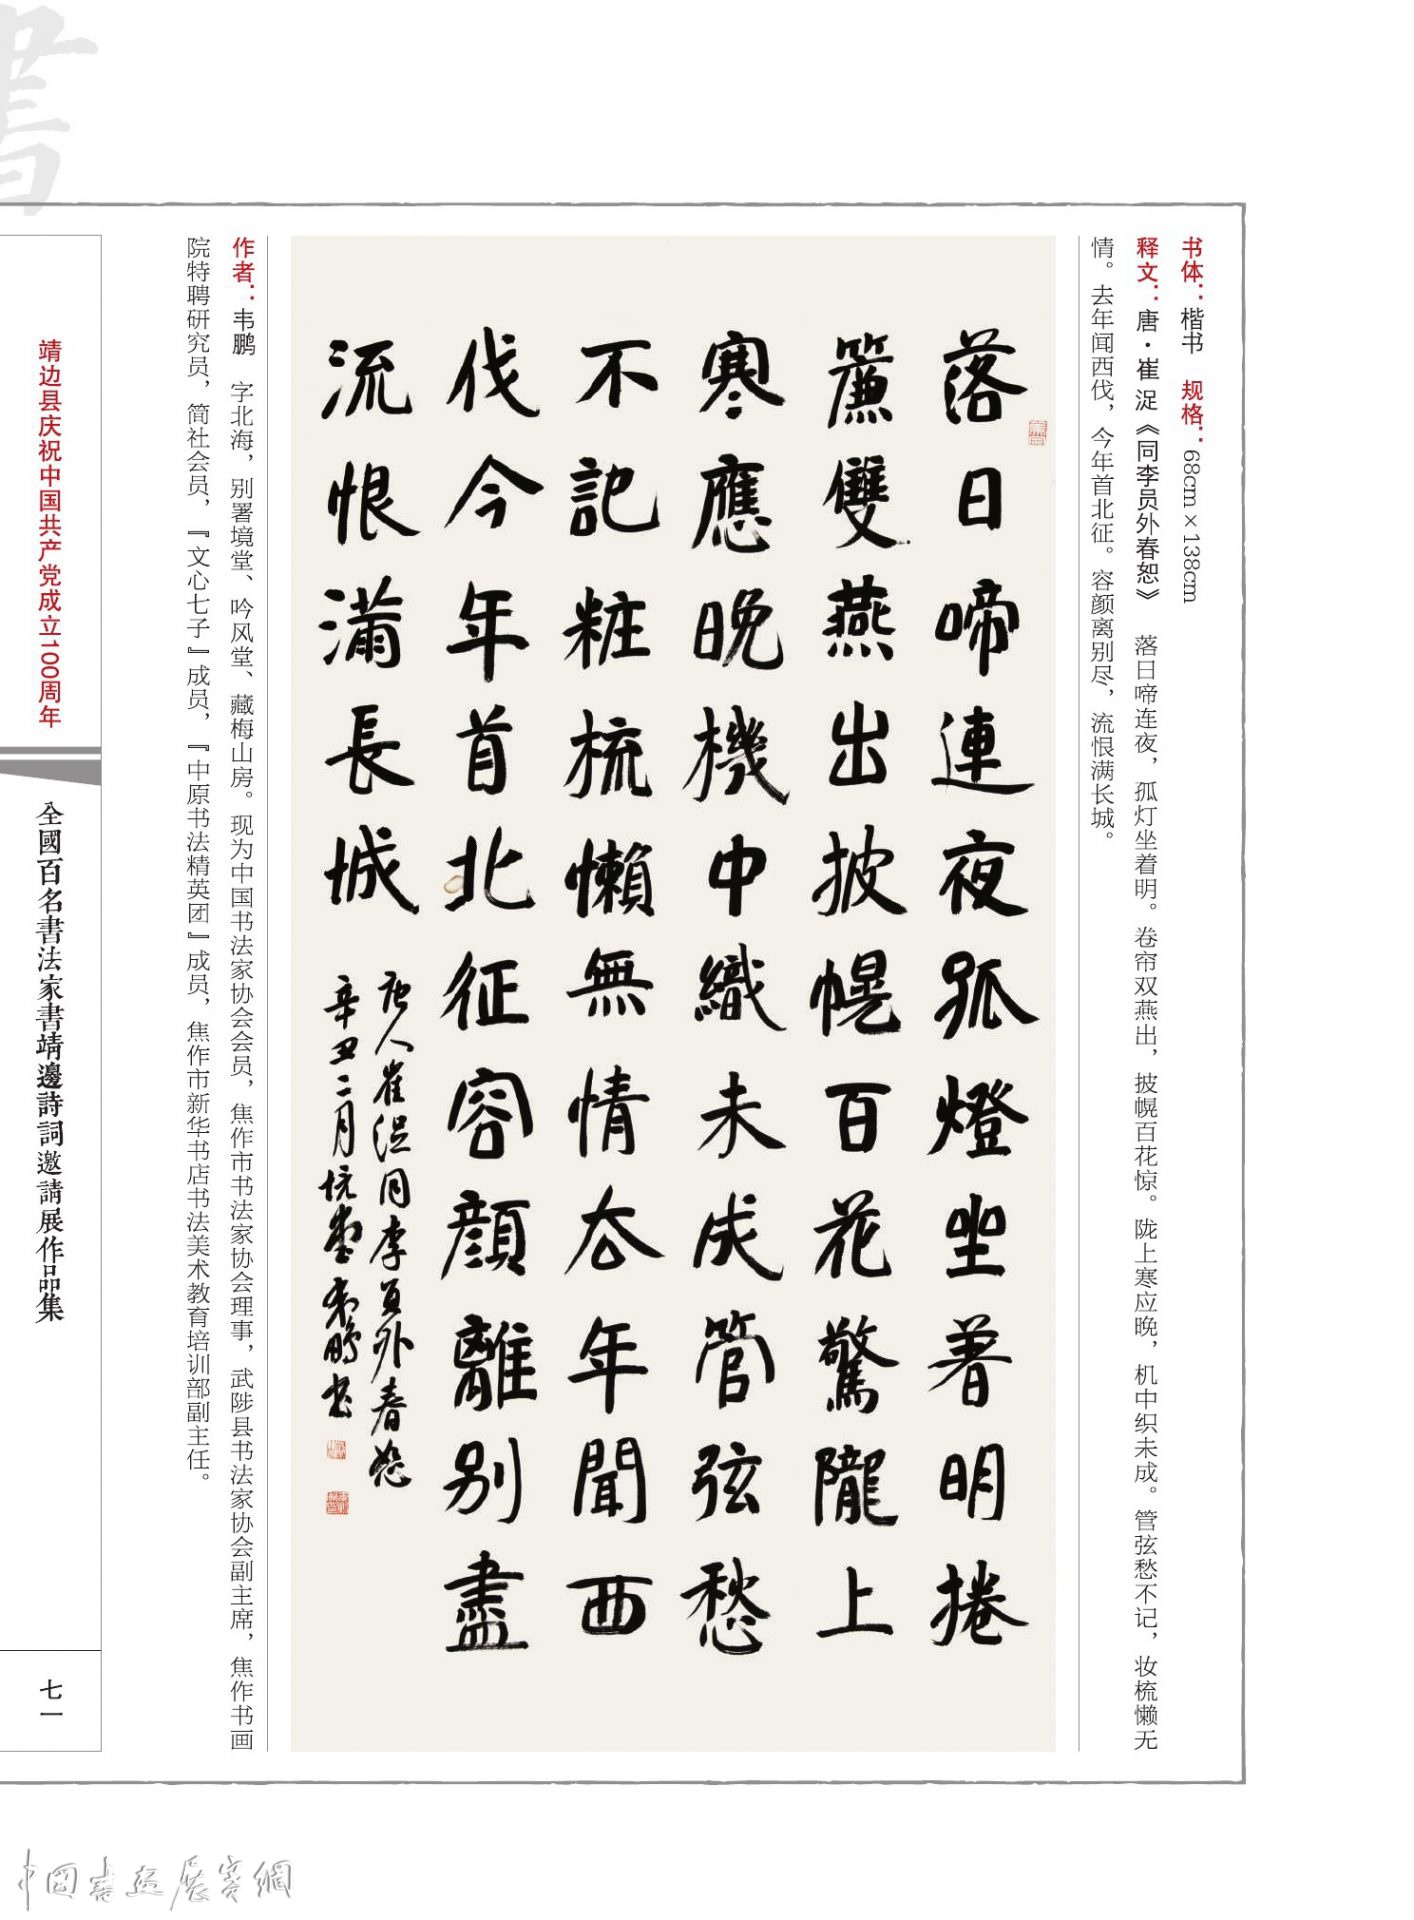 書
书体：楷书　规格：68cm×138cm
释文：唐·崔湜《同李员外春恕》　落日啼连夜，孤灯坐着明。卷帘双燕出，披幌百花惊。陇上寒应晚，机中织未成。管弦愁不记，妆梳懒无
情。去年闻西伐，今年首北征。容颜离别尽，流恨满长城。
落日啼連夜孤燈坐著明捲
簾雙燕出披幌百花驚隴上
寒應晚機中織未成管弦愁
不記粧梳懶無情去年聞西
伐今年首北征容顔離别盡
流恨滿長城
唐人崔湜同李員外春恕
辛丑二月境堂韋鵬书
作者：韦鹏　字北海，别署境堂、吟风堂、藏梅山房。现为中国书法家协会会员，焦作市书法家协会理事，武陟县书法家协会副主席，焦作书画
院特聘研究员，简社会员，『文心七子』成员，『中原书法精英团』成员，焦作市新华书店书法美术教育培训部副主任。
靖边县庆祝中国共产党成立100周年
全國百名書法家書靖邊詩詞邀請展作品集
七一
中國書画展賽網